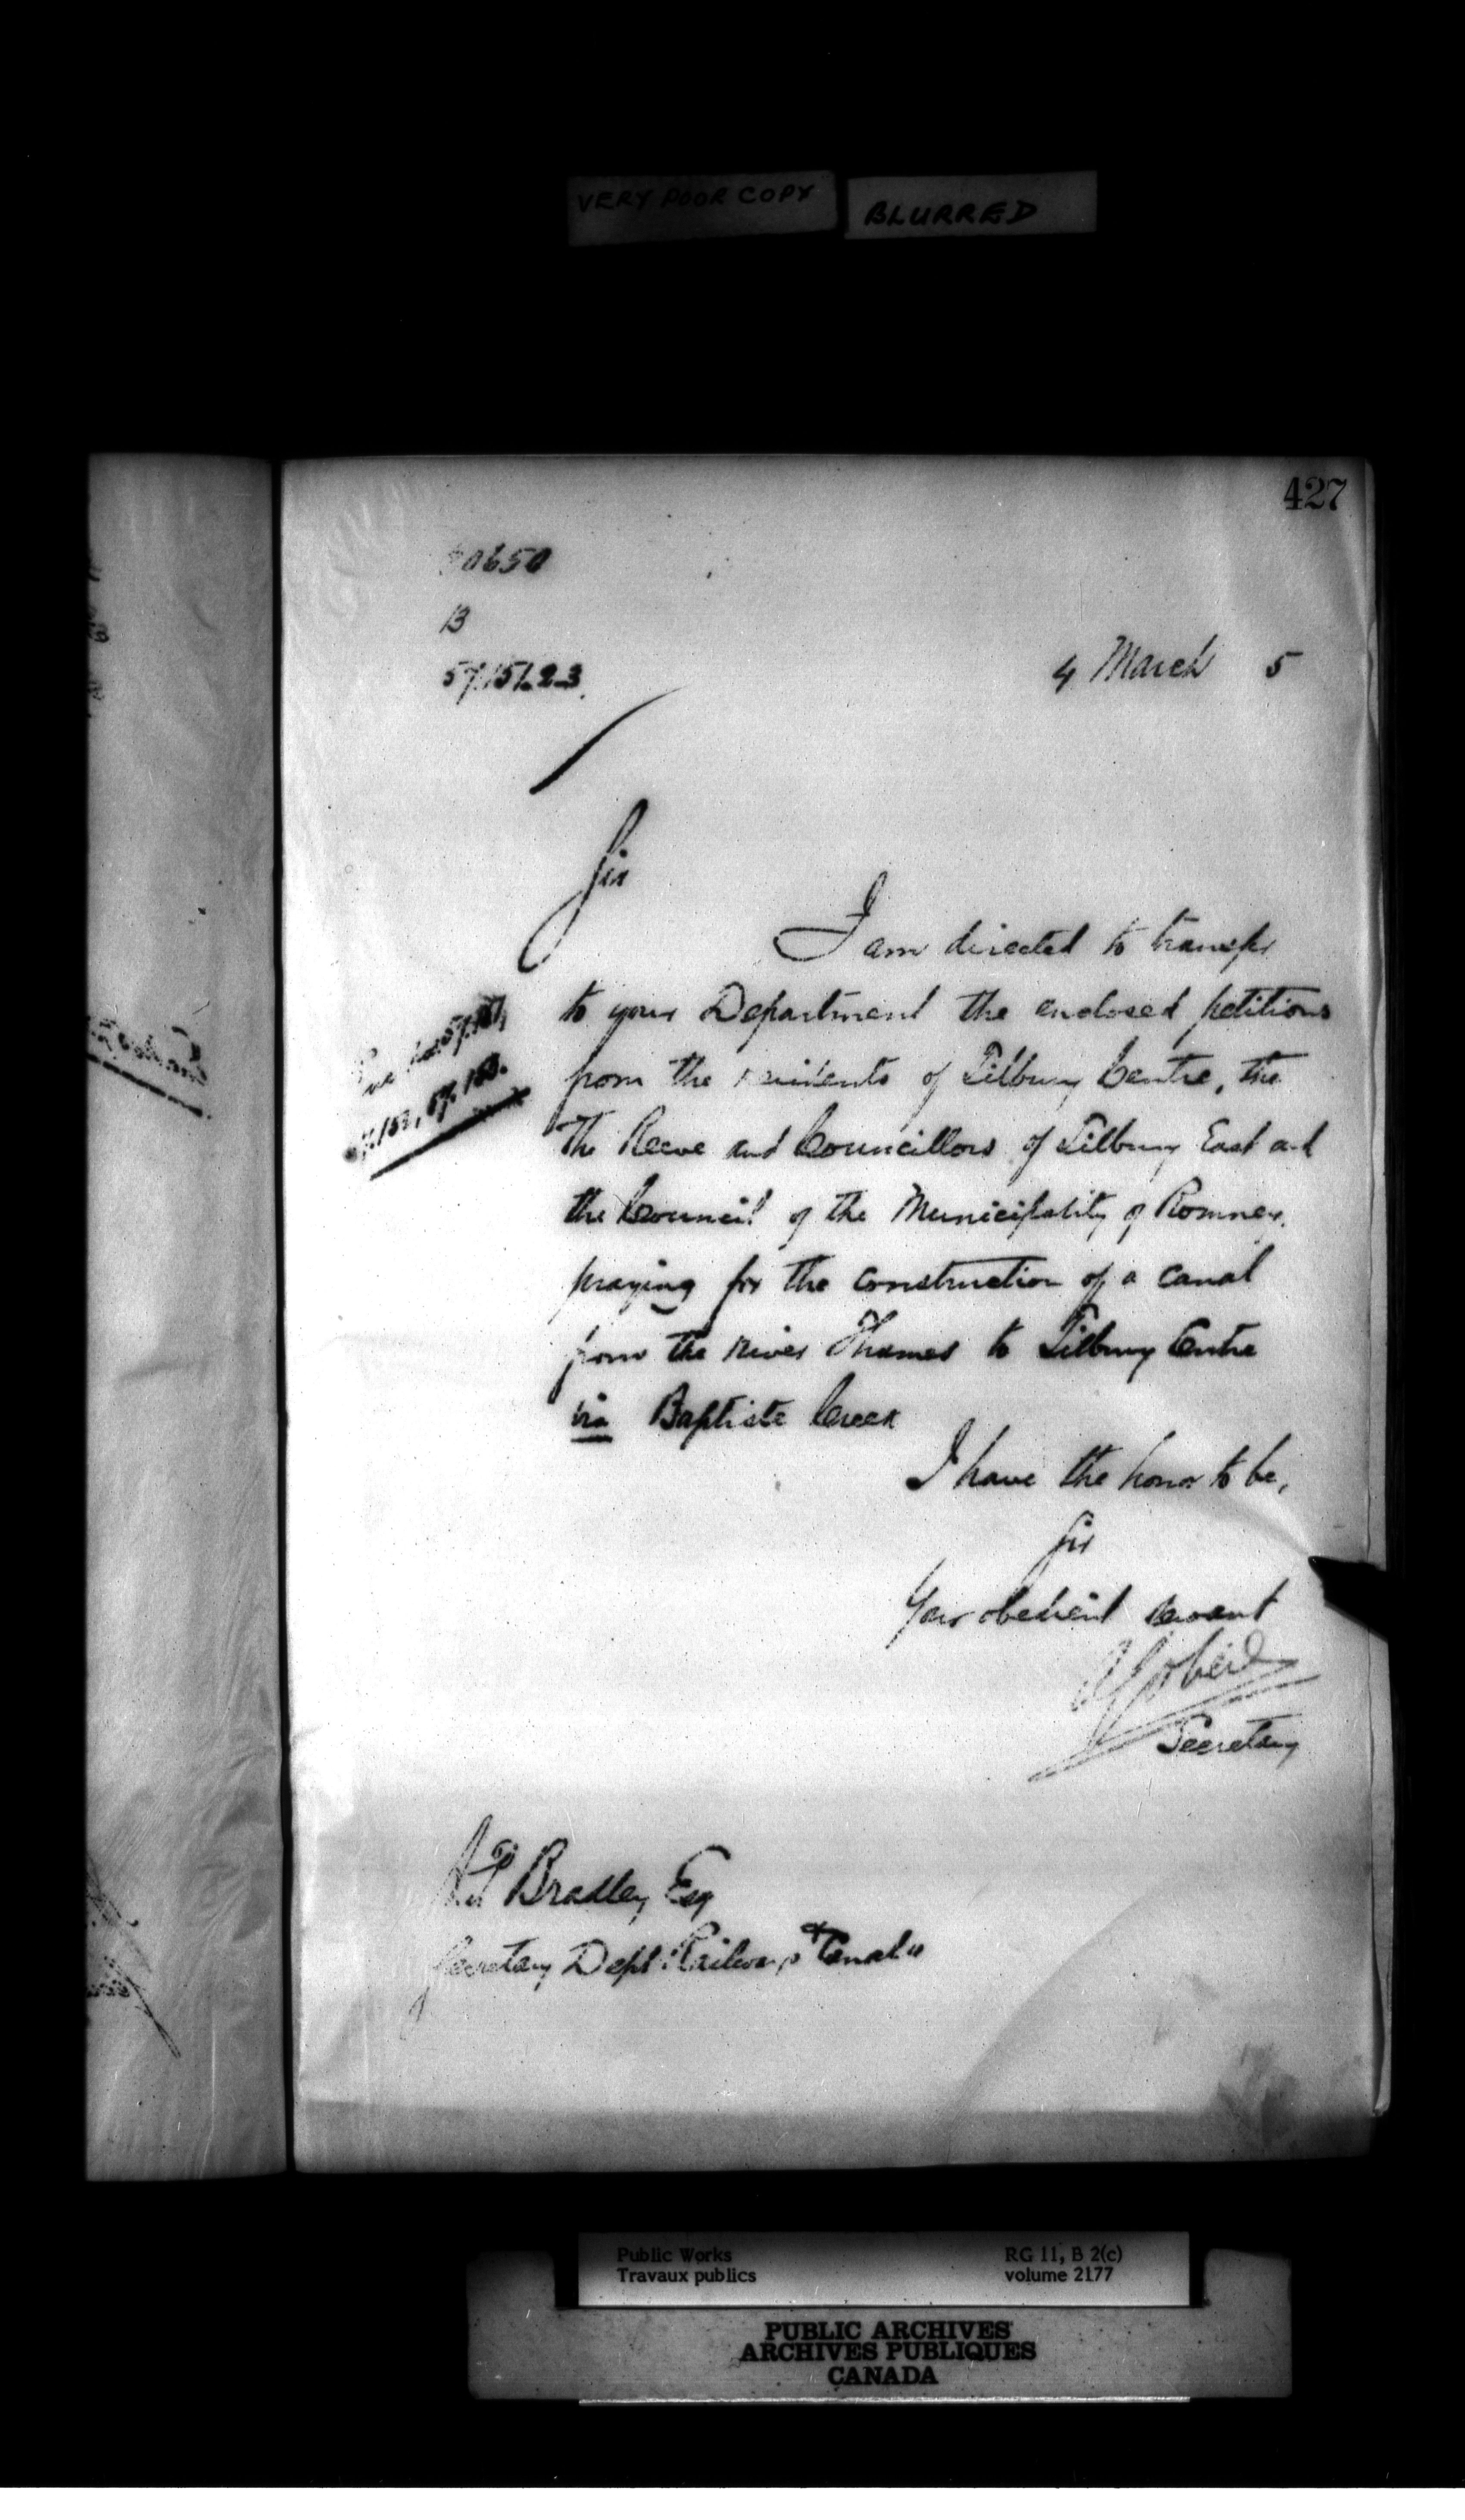 VERY POOR COPY
BLURRED
427
0650
B
57.151.2-3
4 March 5
Sir
I am directed to transfer
to your Department the enclosed petitions
from the residents of Tilbury Centre, the
the Reeve and Councillors of Tilbury East and
the Council of the Municipality of Romney,
praying for the construction of a canal
from the River Thames to Tilbury Centre
via Baptiste Creek
I have the honor to be,
Sir
Your obedient servant
Secretary
A P Bradley, Esq
Secretary Dept Railways & Canals
Public Works
Travaux publics
RG 11, B 2(c)
volume 2177
PUBLIC ARCHIVES
ARCHIVES PUBLIQUES
CANADA